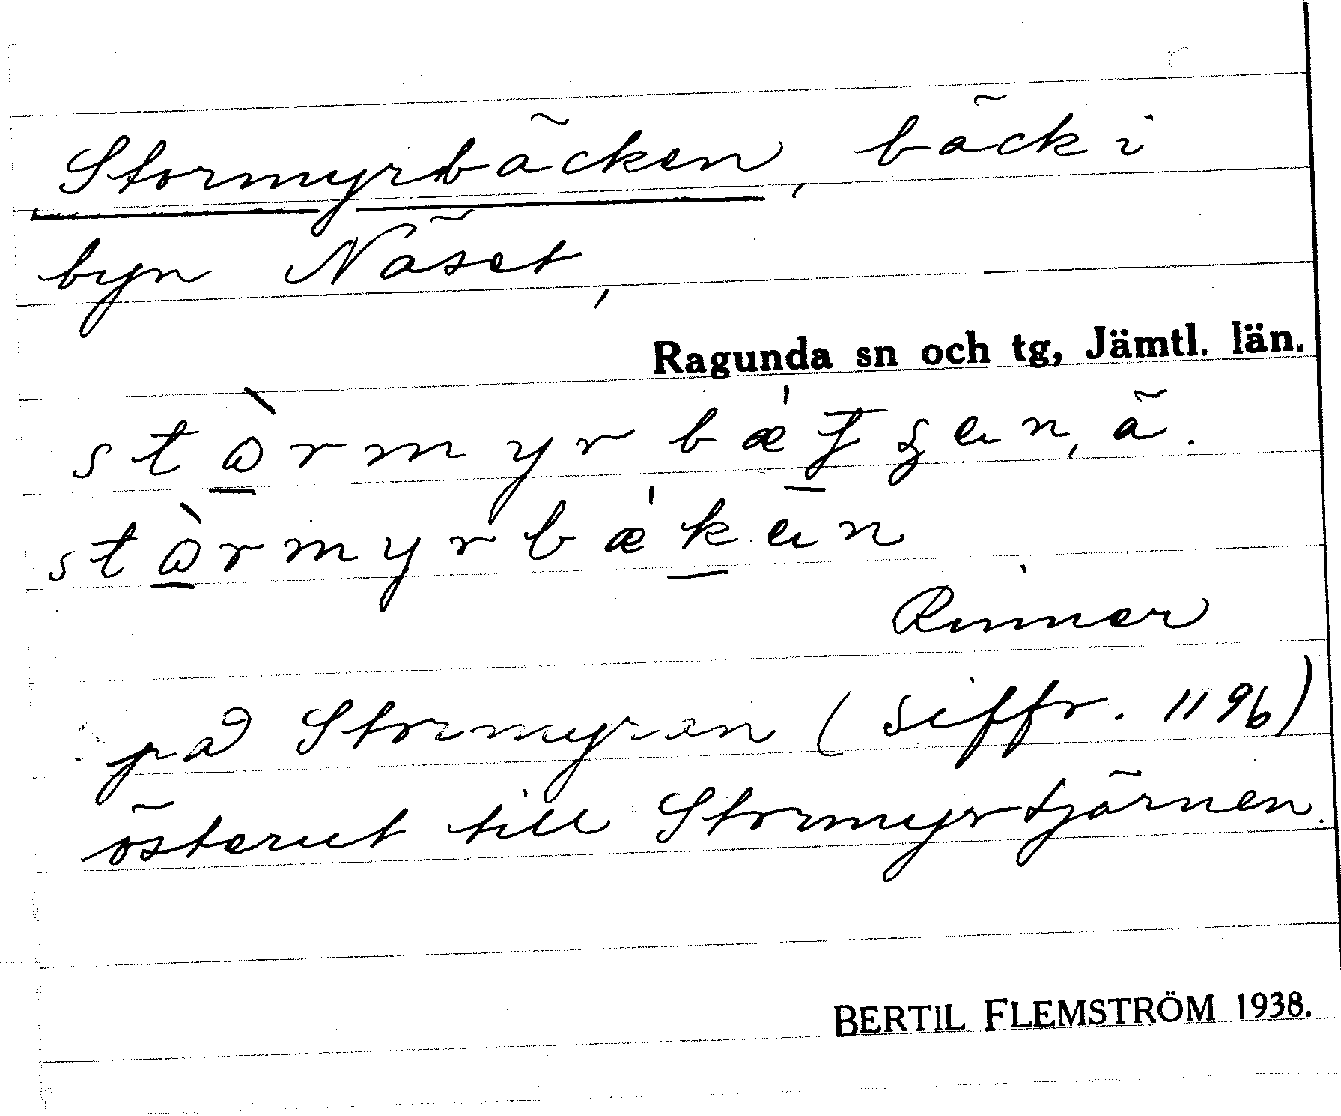 Stormyrbäcken, bäck i
byn Näset,
Ragunda sn och tg, Jämtl. län.
Rinner
på Stormyren (siffr. 1196)
österut till Stormyrtjärnen.
BERTIL FLEMSTRÖM 1938.